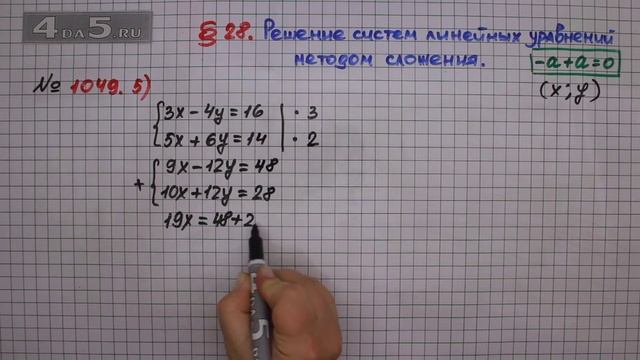 4DA5.RU
§ 28. Решение систем линейных уравнений
методом сложения.
-a+a=0
№ 1049. 5)
(x; y)
3x - 4y = 16 | · 3
5x + 6y = 14 | · 2
9x - 12y = 48
+
10x + 12y = 28
19x = 48+2